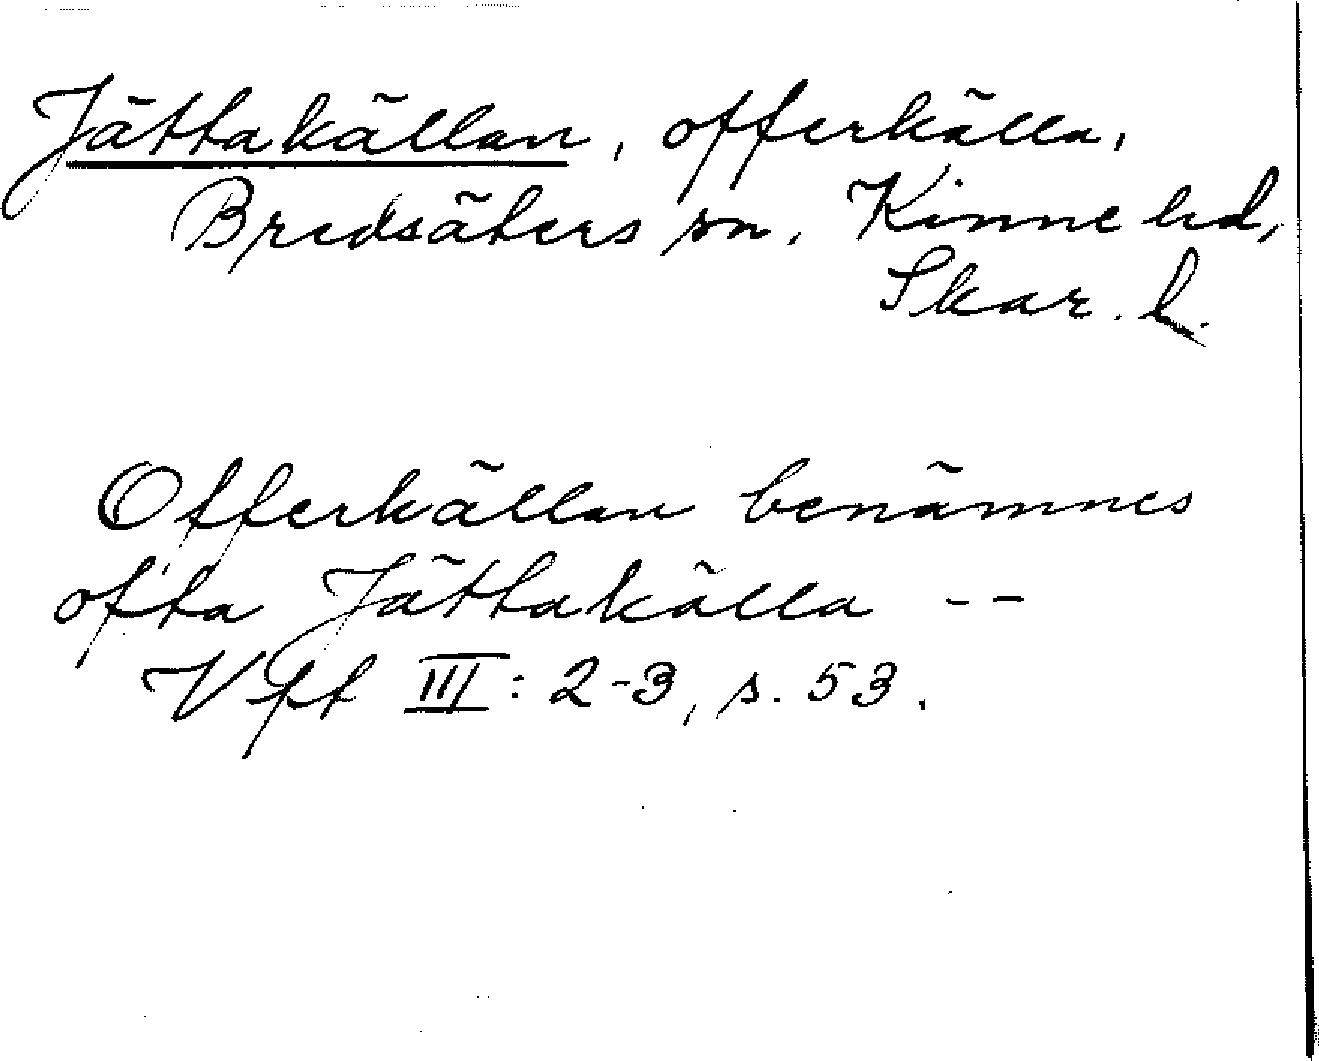 Jättakällan, offerkälla,
Bredsäters sn, Kinne hd,
Skar. l.
Offerkällan benämnes
ofta Jättakälla --
Vft III: 2-3, s. 53.